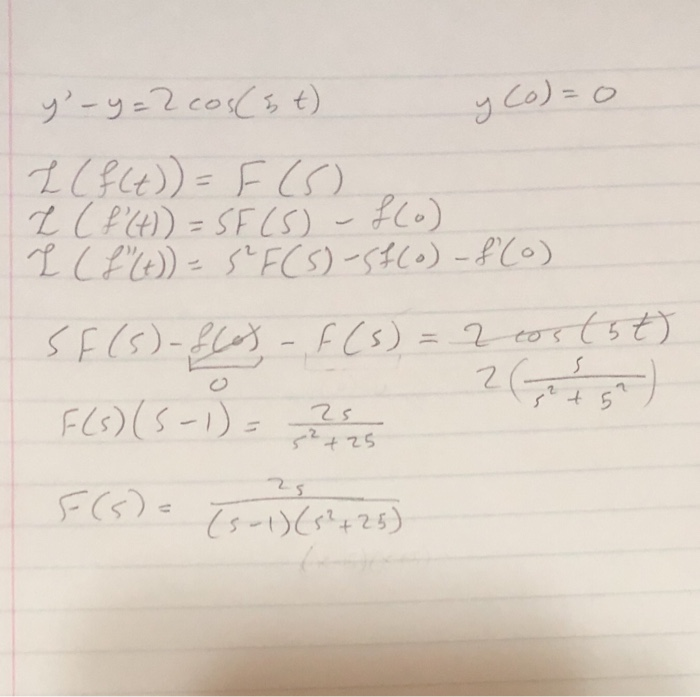 y' - y = 2 cos(5t) y(0) = 0
L(f(t)) = F(s)
L(f'(t)) = sF(s) - f(0)
L(f''(t)) = s²F(s) - sf(0) - f'(0)
sF(s) - f(0) - F(s) = 2 cos(5t)
0 2(s/(s² + 5²))
F(s)(s-1) = 2s/(s²+25)
F(s) = 2s/((s-1)(s²+25))